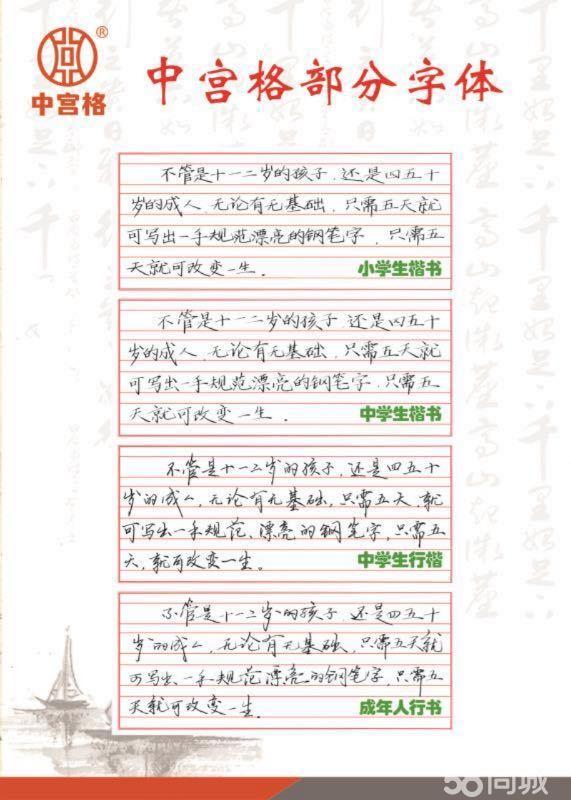 ®
中宫格
中宫格部分字体
不管是十一二岁的孩子,还是四五十
岁的成人,无论有无基础,只需五天就
可写出一手规范漂亮的钢笔字,只需五
天就可改变一生.
小学生楷书
不管是十一二岁的孩子,还是四五十
岁的成人,无论有无基础,只需五天就
可写出一手规范漂亮的钢笔字,只需五
天就可改变一生.
中学生楷书
不管是十一二岁的孩子,还是四五十
岁的成人,无论有无基础,只需五天,就
可写出一手规范、漂亮的钢笔字,只需五
天,就可改变一生。
中学生行楷
不管是十一二岁的孩子,还是四五十
岁的成人,无论有无基础,只需五天就
可写出一手规范漂亮的钢笔字,只需五
天就可改变一生.
成年人行书
58同城